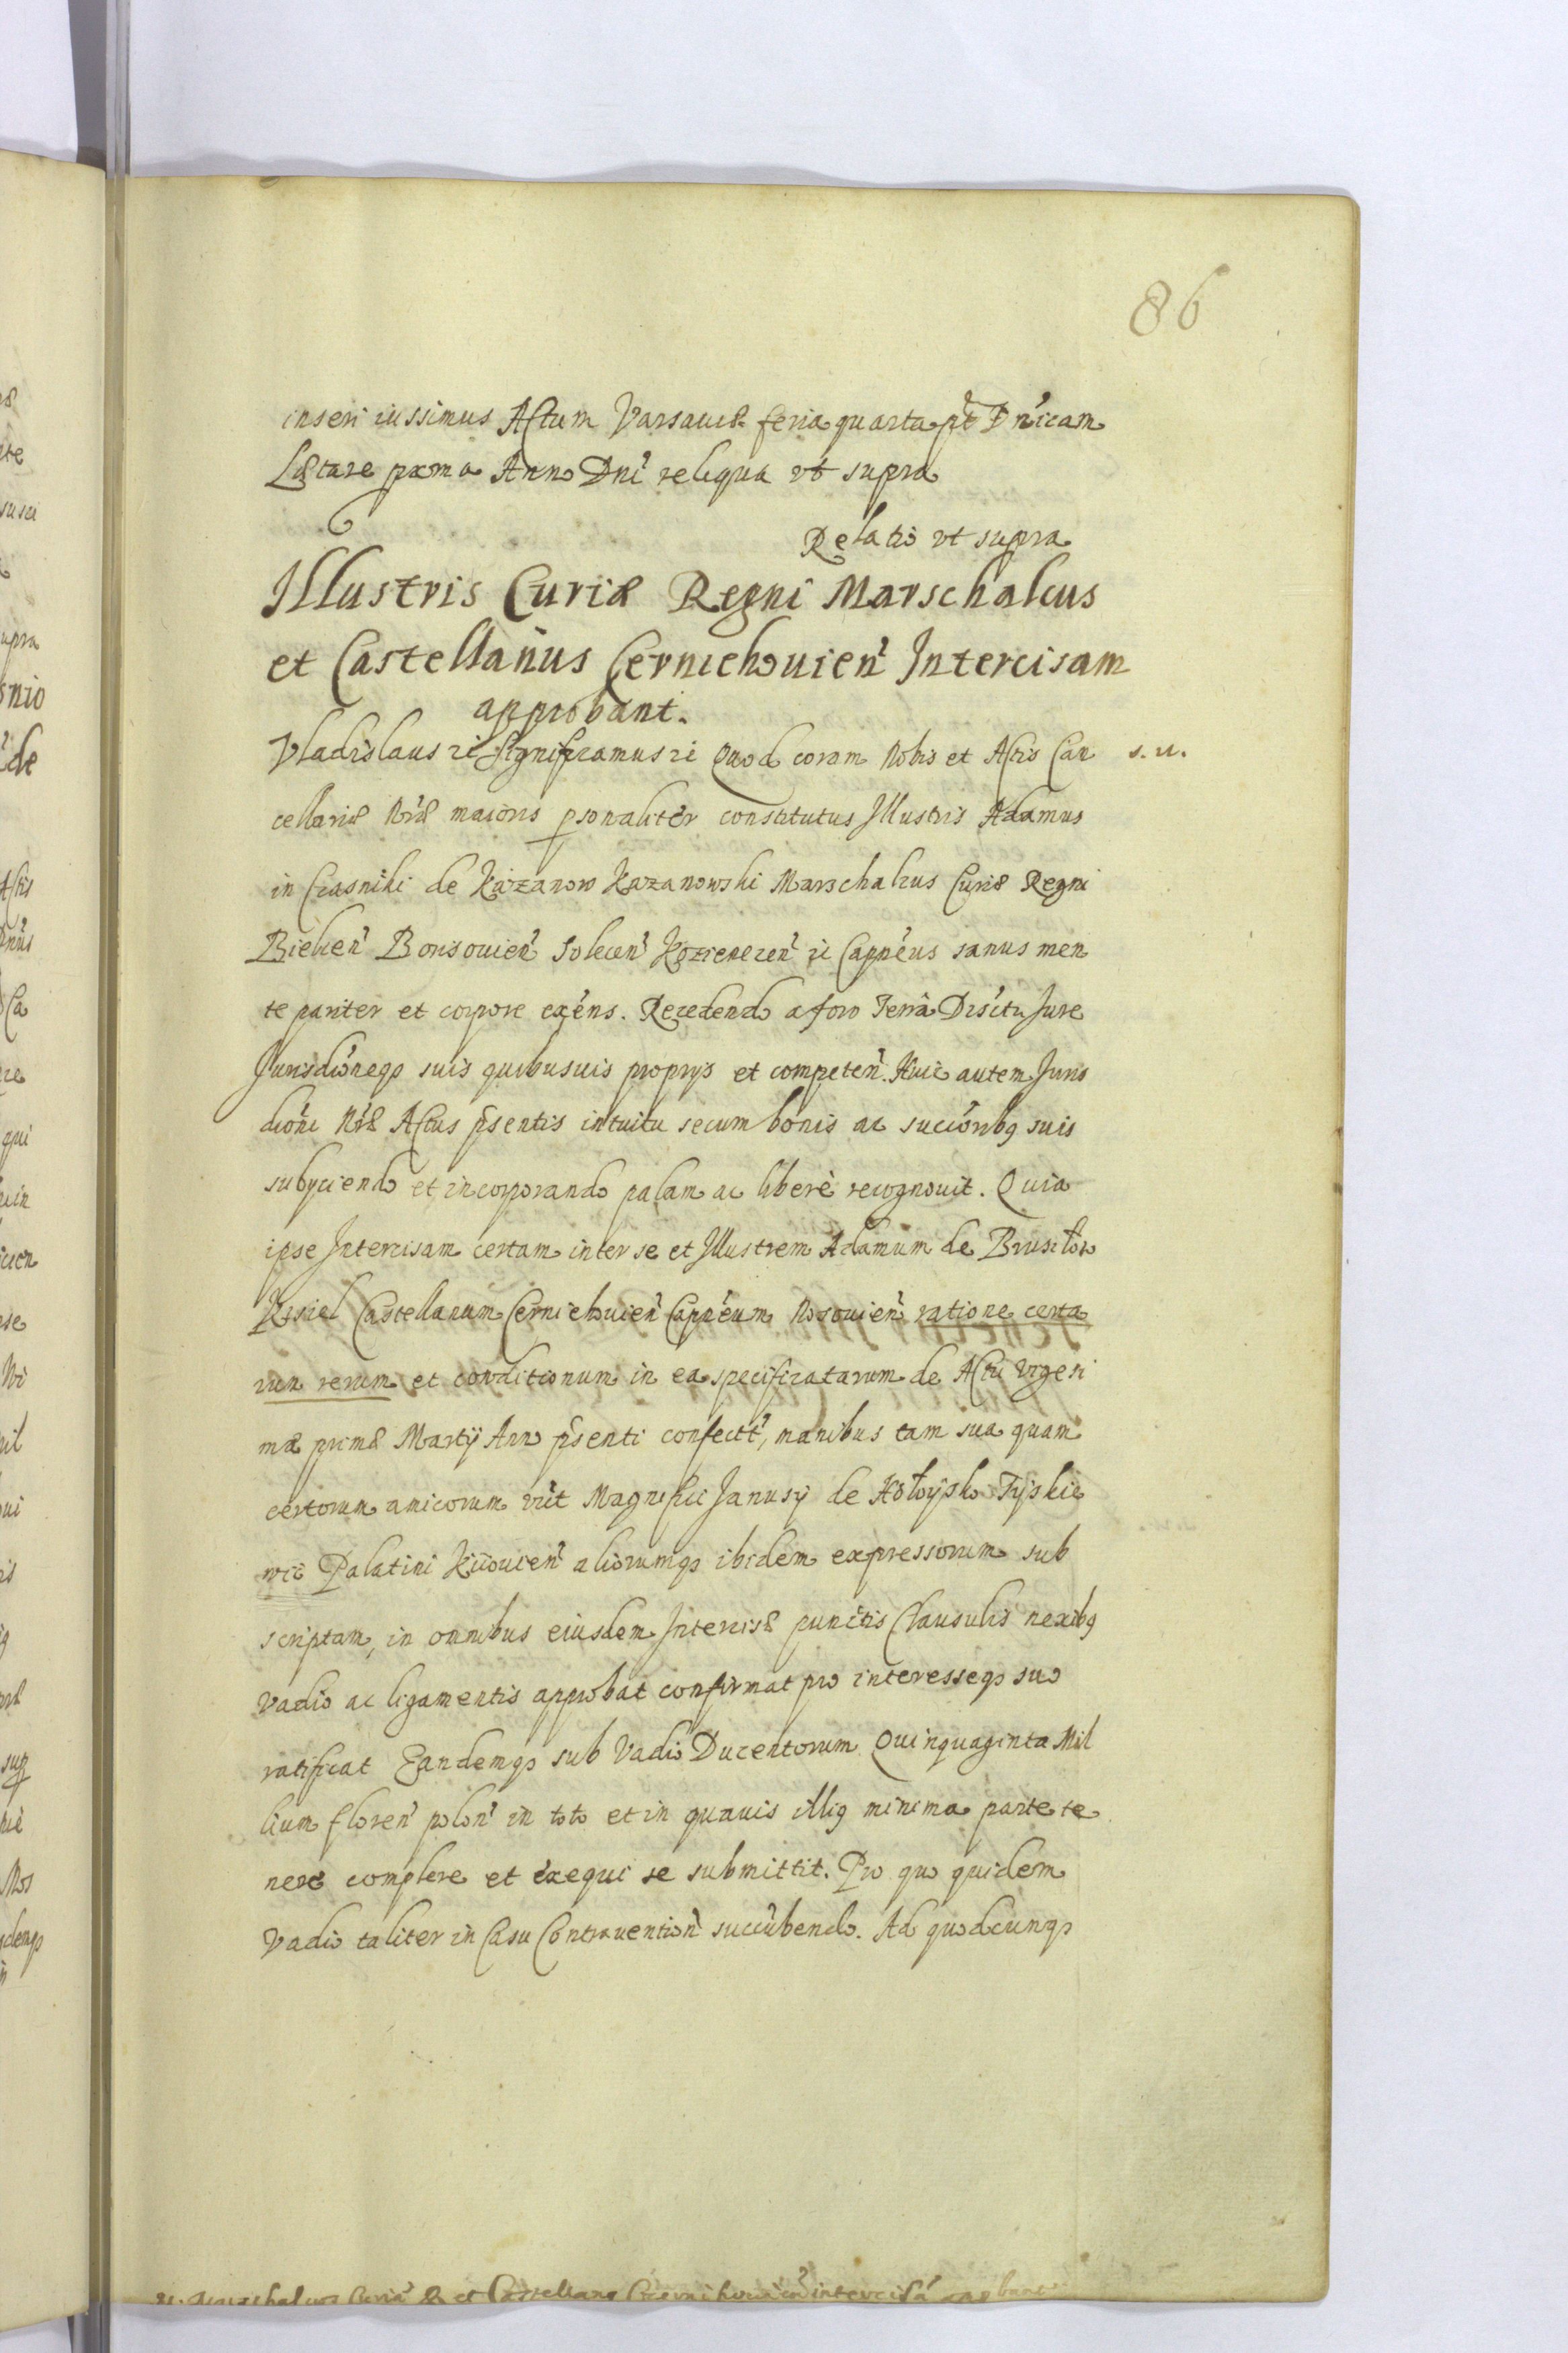 86
inseri iussimus Actum Varsauiæ feria quarta pt Dnicam
Lætare pxma Anno Dni reliqua vt supra
Relatio vt supra
Illustris Curiæ Regni Marschalcus
et Castellanus Cerniehouien Intercisam
approbant.
Vladislaus ii Significamus ii Quod coram Nobis et Actis Can s. u.
cellariæ Nræ maioris psonaliter constitutus Illustris Adamus
in Crasniki de Kazanow Kazanowski Marschalcus Curiæ Regni
Bielien Borisouien Solecen Kozienicen ii Cappneus sanus men
te pariter et corpore exens. Recedendo a foro Terra Disctu Jure
Jurisdioneqȝ suis quibusuis proprys et competen. Huic autem Juris
dioni Nræ Actus psentis intuitu secum bonis ac succoribȝ suis
subyciendo et incorporando palam ac liberè recognouit. Quia
ipse Intercisam certam inter se et Illustrem Adamum de Brusiłow
Kisiel Castellanum Cerniehouien Cappneum Nosouien ratione certa
rum rerum et conditionum in ea specificatarum de Actu vigesi
ma primæ Martij Anno psenti confectt, manibus tam sua quam
certorum amicorum vtt Magnifici Janusy de Hołoysko Tyskie
wic Palatini Kiiouien aliorumqȝ ibidem expressorum sub
scriptam, in omnibus eiusdem Intercisæ punctis Clausulis nexibȝ
vadio ac ligamentis approbat confirmat pro interesseqȝ suo
ratificat Eandemqȝ sub Vadio Ducentorum Quinquaginta Mil
lium floren polon in toto et in quauis illiȝ minima parte te
nere complere et exequi se submittit. Pro quo quidem
Vadio taliter in Casu Contrauention succubendo. Ad quodcunqȝ
et Castellanȝ Czernihouien intercisa